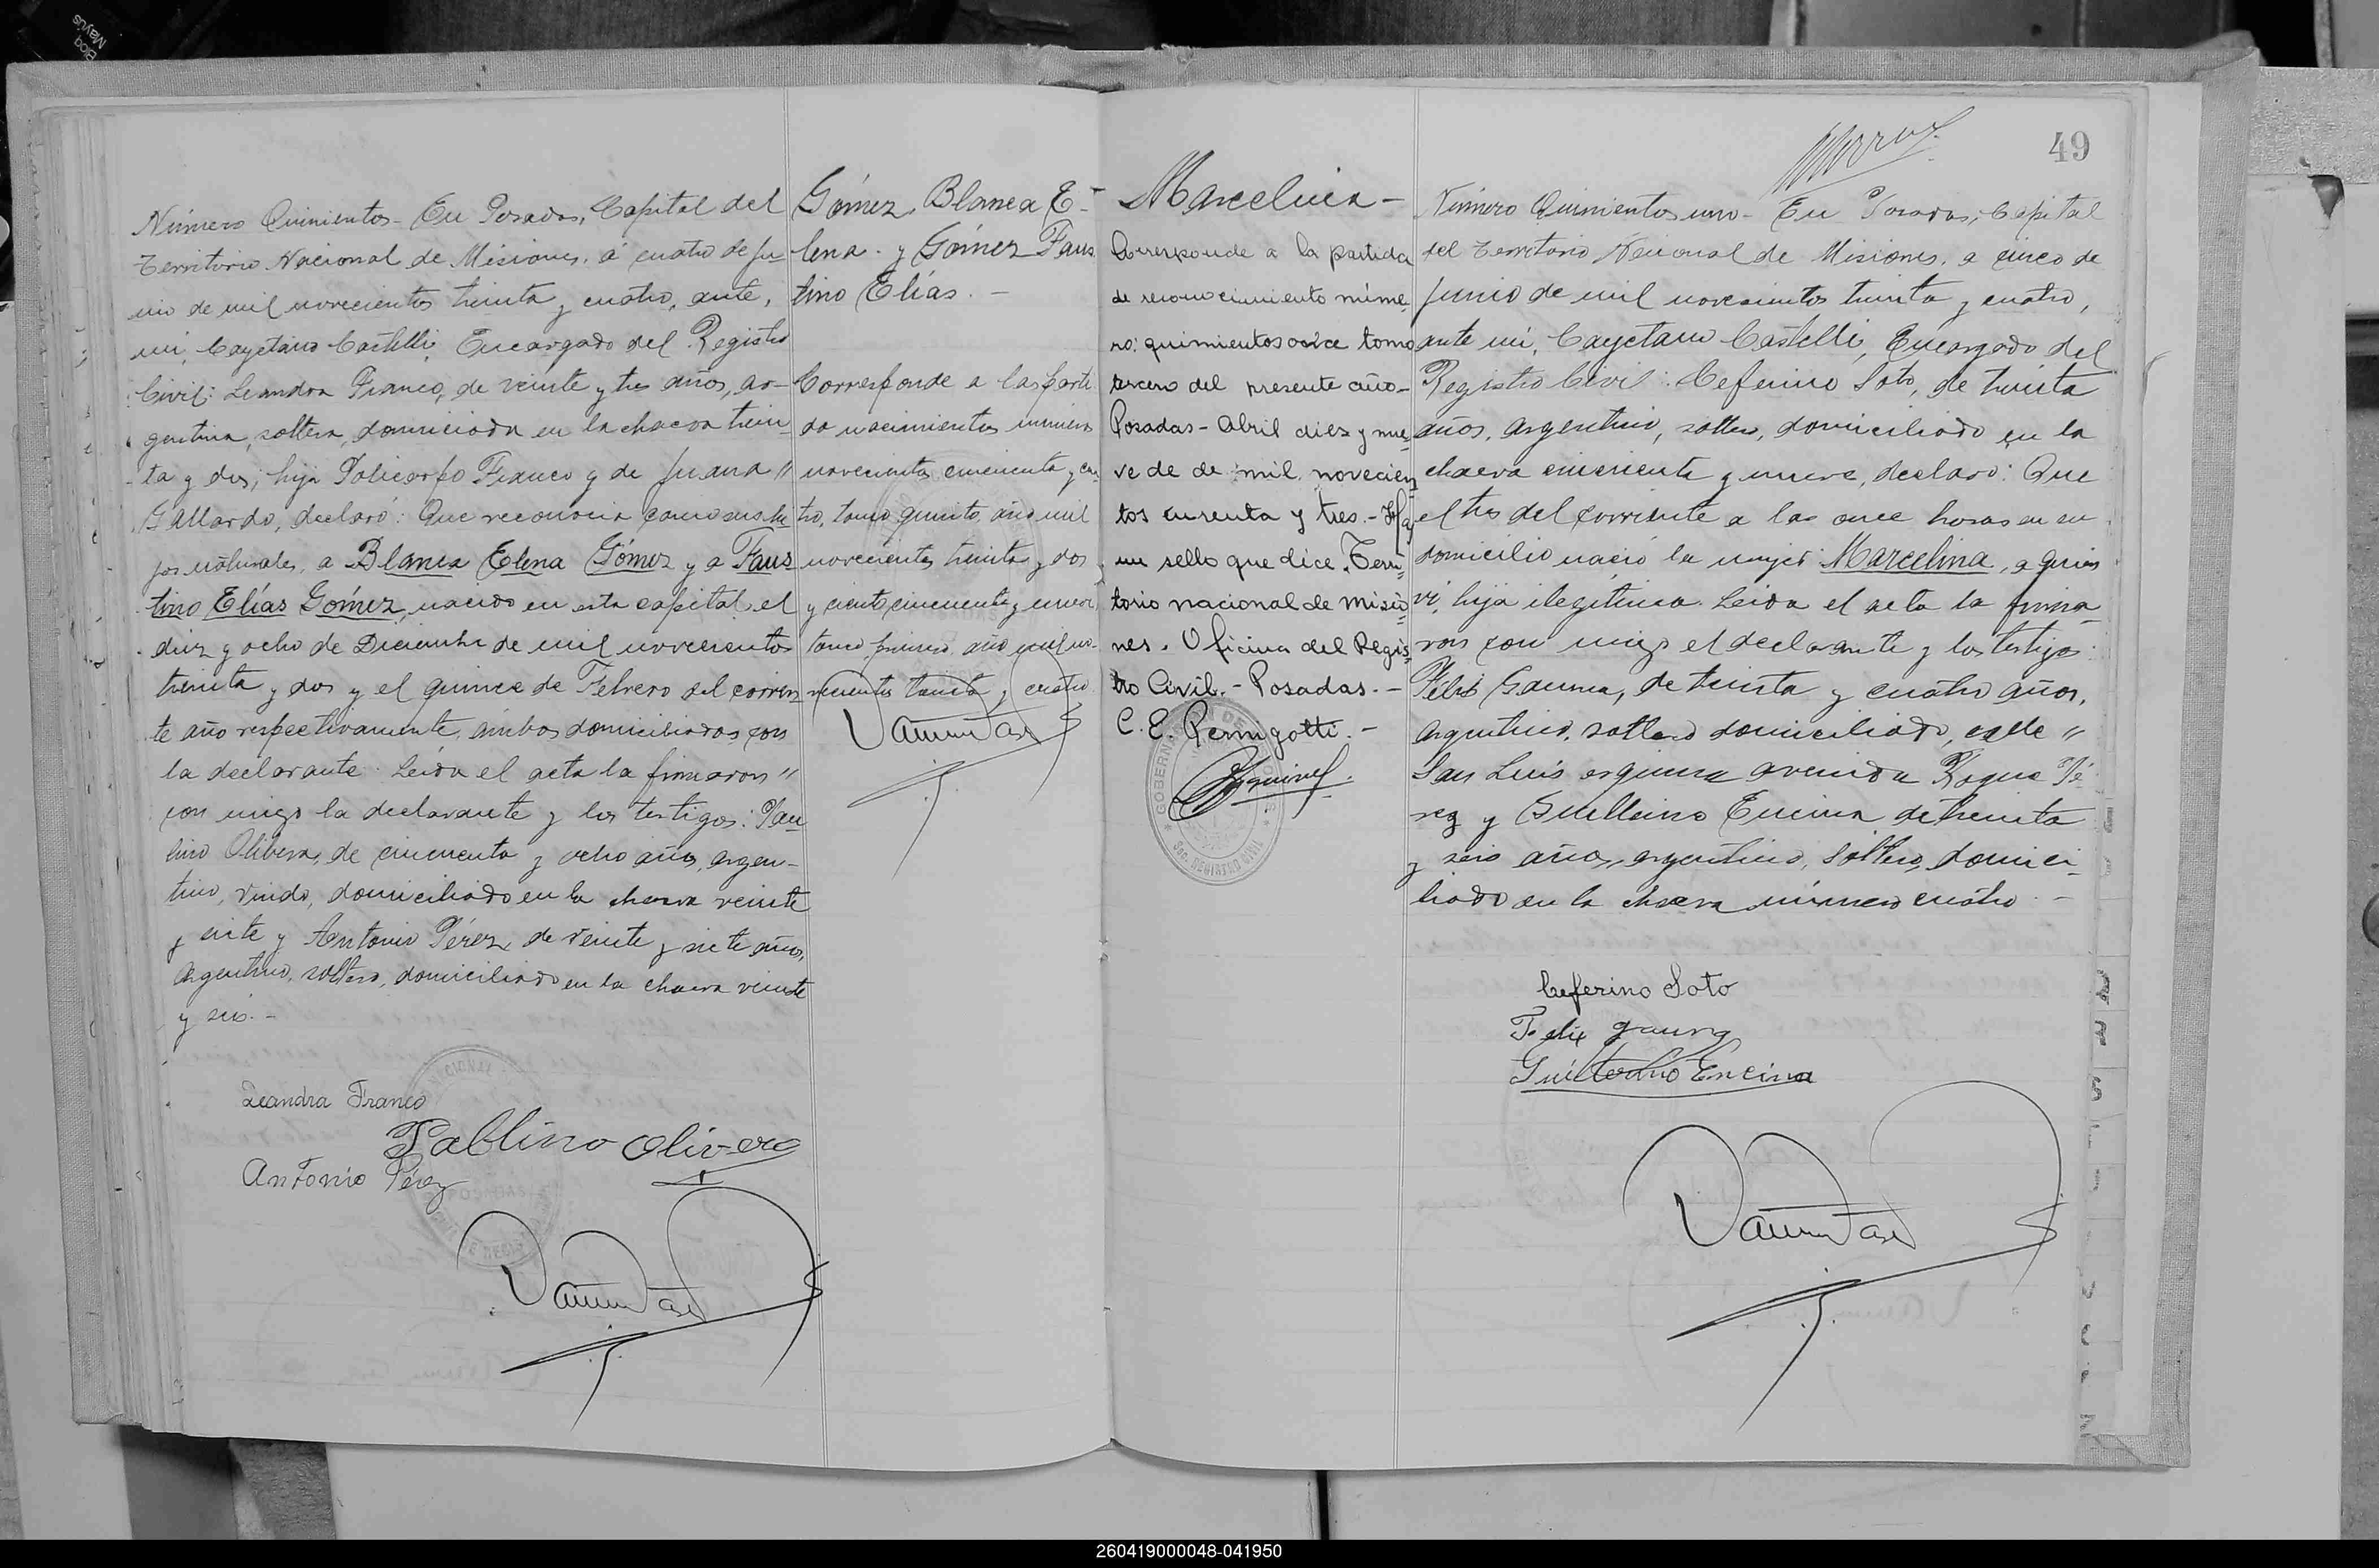 Bloq
Mayús
Número Quinientos - En Posadas, Capital del
Territorio Nacional de Misiones, á cuatro de ju-
nio de mil novecientos treinta y cuatro, ante,
mi, Cayetano Castelli, Encargado del Registro
Civil: Leandra Franco, de veinte y tres años, ar-
gentina, soltera, domiciliada en la chacra trein-
ta y dos, hija Policarpo Franco y de Juana "
Gallardo, declaró: Que reconocia como sus hi
jos naturales, a Blanca Elena Gómez y a Faus
tino Elías Gómez, nacido en esta capital el
diez y ocho de Diciembre de mil novecientos
treinta y dos y el quince de Febrero del corrien
te año respectivamente, ambos domiciliados con
la declarante. Leida el acta la firmaron "
con migo la declarante y los testigos: Pau
lino Olivera, de cincuenta y ocho años, argen-
tino, viudo, domiciliado en la chacra veinte
y siete y Antonio Pérez, de veinte y siete años,
argentino, soltero, domiciliado en la chacra veinte
y seis. -
Leandra Franco
Pablino Olivera
Antonio Pérez
Gómez, Blanca E-
lena. y Gómez Faus
tino Elías. -
Corresponde a las parti
da nacimientos número
novecientos cincuenta y cua
tro, tomo quinto, año mil
novecientos treinta y dos
y ciento cincuenta y nueve,
tomo primero, año mil no-
vecientos treinta y cuatro
Marcelina -
Corresponde a la partida
de reconocimiento núme
ro: quinientos once tomo
tercero del presente año -
Posadas - Abril diez y nue-
ve de de mil novecien
tos curenta y tres. - Hay
un sello que dice. Terri-
torio nacional de Misio
nes. Oficina del Regis-
tro Civil. - Posadas. -
C. E. Pernigotti. -
49
Número Quinientos uno - En Posadas, Capital
del Territorio Nacional de Misiones, a cinco de
junio de mil novecientos treinta y cuatro,
ante mi, Cayetano Castelli, Encargado del
Registro Civil: Ceferino Soto, de treinta
años, argentino, soltero, domiciliado en la
chacra cincuenta y nueve, declaro: Que
el tres del corriente a las once horas en su
domicilio nació la mujer: Marcelina, a quien
vi, hija ilegítima. Leida el acta la firma-
ron con migo el declarante y los testigos:
Felix Gauna, de treinta y cuatro años,
argentino, soltero domiciliado, calle "
San Luis esquina avenida Roque Pé-
rez y Guillermo Encina de treinta
y seis años, argentino, soltero, domici-
liado en la chacra número cuatro. -
Ceferino Soto
Felix Gauna
Guillermo Encina
260419000048-041950